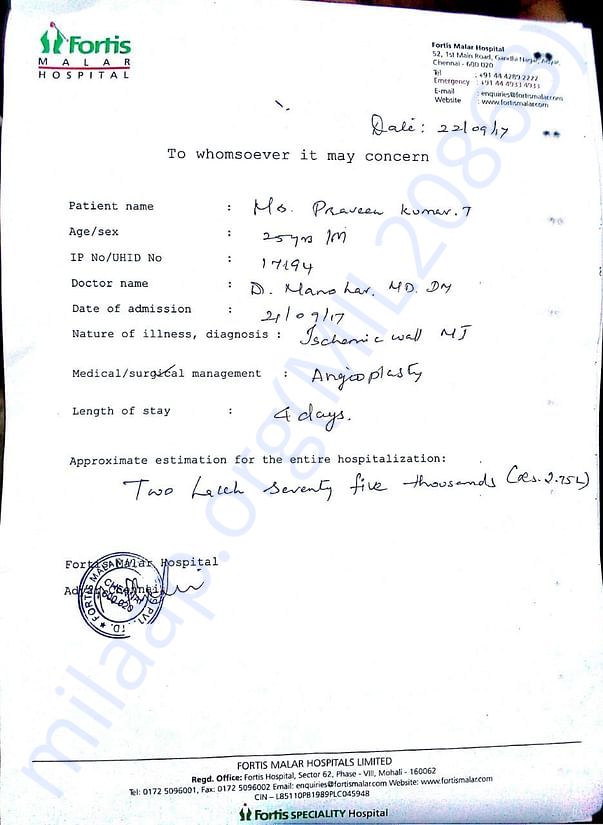 Fortis
MALAR
HOSPITAL
Fortis Malar Hospital
52, 1st Main Road, Gandhi Nagar, Adyar,
Chennai - 600 020
Tel : +91 44 4289 2222
Emergency : +91 44 4933 4933
E-mail : enquiries@fortismalar.com
Website : www.fortismalar.com
Date: 22/09/17
To whomsoever it may concern
Patient name : Mr. Praveen Kumar. T
Age/sex : 25yrs /M
IP No/UHID No : 17194
Doctor name : D. Manohar. MD. DM
Date of admission : 21/09/17
Nature of illness, diagnosis : Ischemic wall MI
Medical/surgical management : Angioplasty
Length of stay : 4 days.
Approximate estimation for the entire hospitalization:
Two Lakh Seventy five thousands (Rs. 2.75L)
Fortis Malar Hospital
Adyar, Chennai
FORTIS MALAR
CHENNAI
600 020
PVT. LTD.
milaap.org(MIL20863)
FORTIS MALAR HOSPITALS LIMITED
Regd. Office: Fortis Hospital, Sector 62, Phase - VIII, Mohali - 160062
Tel: 0172 5096001, Fax: 0172 5096002 Email: enquiries@fortismalar.com Website: www.fortismalar.com
CIN - L85110PB1989PLC045948
Fortis SPECIALITY Hospital